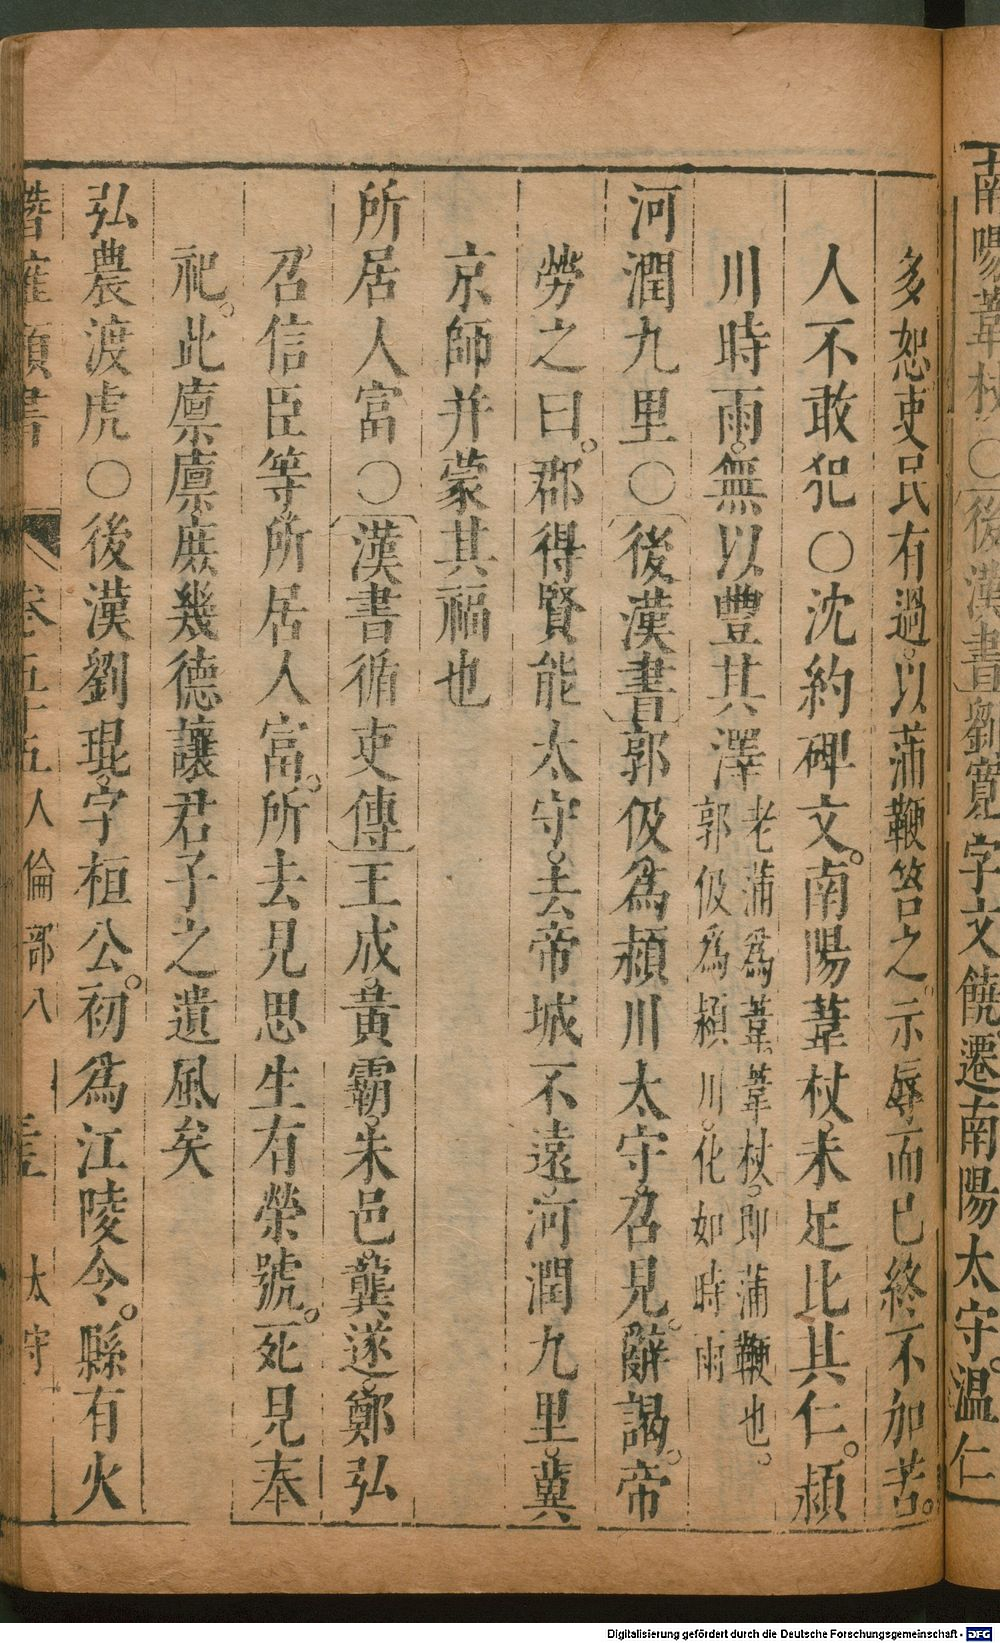 南陽葦杖○後漢書劉寬字文饒遷南陽太守溫仁
多恕吏民有過以蒲鞭笞之示辱而已終不加苦
人不敢犯○沈約碑文南陽葦杖未足比其仁潁
川時雨無以豐其澤老蒲爲葦葦杖即蒲鞭也
郭伋爲潁川化如時雨
河潤九里○後漢書郭伋爲潁川太守召見辭謁帝
勞之曰郡得賢能太守去帝城不遠河潤九里冀
京師并蒙其福也
所居人富○漢書循吏傳王成黃霸朱邑龔遂鄭弘
召信臣等所居人富所去見思生有榮號死見奉
祀此廩廩庶幾德讓君子之遺風矣
弘農渡虎○後漢劉琨字桓公初爲江陵令縣有火
潛確類書 卷五十五人倫部八 太守
Digitalisierung gefördert durch die Deutsche Forschungsgemeinschaft - DFG